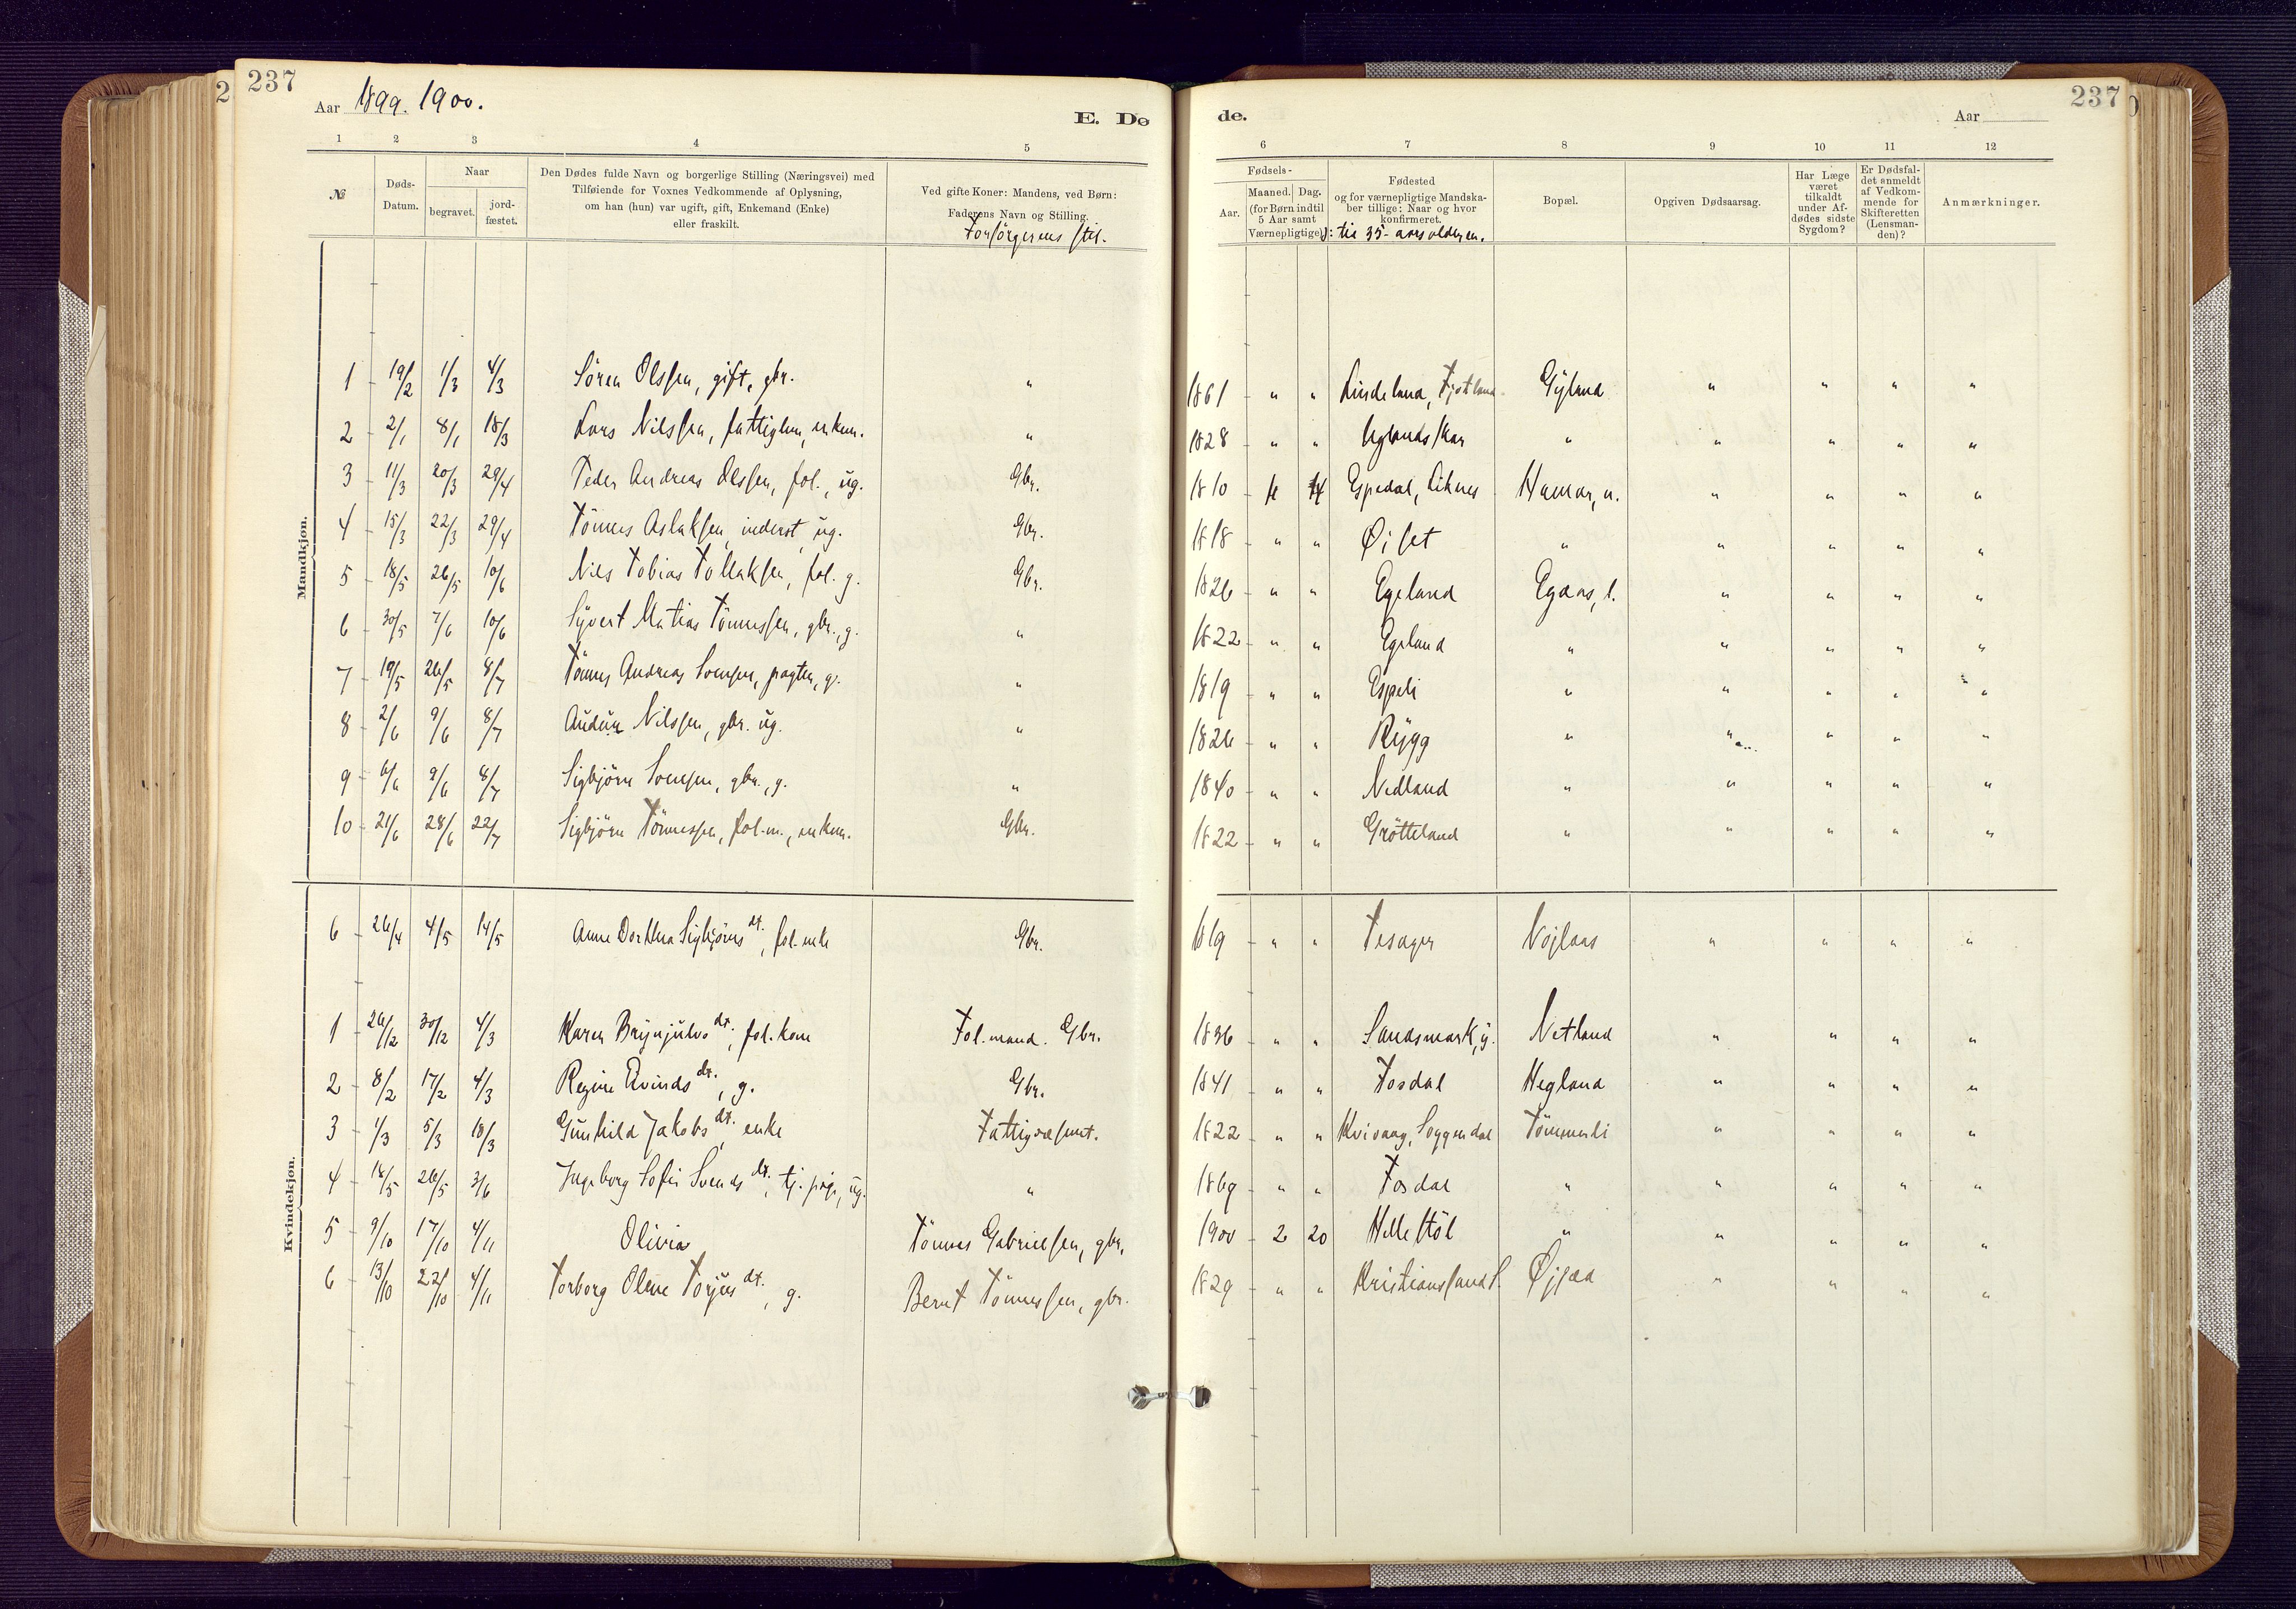 237
Aar 1899. 1900.
E. Dø
de.
Aar
237
1 2 3 4 5 6 7 8 9 10 11 12
№
Døds-Datum.
Naar
begravet.
jord-fæstet.
Den Dødes fulde Navn og borgerlige Stilling (Næringsvei) med
Tilføiende for Voxnes Vedkommende af Oplysning,
om han (hun) var ugift, gift, Enkemand (Enke)
eller fraskilt.
Ved gifte Koner: Mandens, ved Børn:
Faderens Navn og Stilling.
Forsørgerens stil.
Fødsels-
Aar.
Maaned. Dag.
(for Børn indtil
5 Aar samt
Værnepligtige)
Fødested
og for værnepligtige Mandska-
ber tillige: Naar og hvor
konfirmeret.
ɔ: til 35-aarsalderen.
Bopæl.
Opgiven Dødsaarsag.
Har Læge
været
tilkaldt
under Af-
dødes sidste
Sygdom?
Er Dødsfal-
det anmeldt
af Vedkom-
mende for
Skifteretten
(Lensman-
den)?
Anmærkninger.
Mandkjøn.
1 19/2 1/3 4/3 Sören Olssen, gift, gbr. " 1861 " " Lindeland, Fjotland Gyland " " " "
2 2/1 8/1 18/3 Lars Nilssen, fattiglem, enkem. " 1828 " " Uglandsskar " " " " "
3 11/3 20/3 29/4 Peder Andreas Olssen, fol., ug. Gbr. 1810 14 Espedal, Liknes Hamar, n. " " " "
4 15/3 22/3 29/4 Tönnes Aslaksen, inderst, ug. Gbr. 1818 " " Øiset " " " " "
5 18/5 26/5 10/6 Nils Tobias Tollaksen, fol. g. Gbr. 1826 " " Egeland Egaas, l. " " " "
6 30/5 7/6 10/6 Syvert Matias Tönnessen, gbr., g. " 1822 " " Egeland " " " " "
7 19/5 26/5 8/7 Tönnes Andreas Svensen, pagter, g. " 1819 " " Espeli " " " " "
8 2/6 9/6 8/7 Audun Nilssen, gbr. ug. " 1826 " " Rygg " " " " "
9 6/6 9/6 8/7 Sigbjörn Svensen, gbr., g. " 1840 " " Nedland " " " " "
10 21/6 28/6 22/7 Sigbjörn Tönnessen, fol.m., enkem. Gbr. 1822 " " Grötteland " " " " "
Kvindekjøn.
6 26/4 4/5 14/5 Anne Dorthea Sigbjörns dt., fol. enke Gbr. 1819 " " Tesager " " " "
1 26/12 30/12 4/3 Karen Brynjulvs dt., fol. kone Fol. mand. Gbr. 1836 " " Sandsmark, y. Netland " " " "
2 8/2 17/2 4/3 Regine Eivinds dt., g. Gbr. 1841 " " Fosdal Hegland " " " "
3 1/3 5/3 18/3 Gunhild Jakobs dt. enke Fattigvæsent. 1822 " " Kvivaag, Soggendal Tömmerli " " " "
4 18/5 26/5 3/6 Ingeborg Sofie Svends dt., tj. pige, ug. " 1869 " " Fosdal " " " " "
5 9/10 17/10 4/11 Olivia Tönnes Gabrielsen, gbr. 1900 2 20 Hellestöl " " " " "
6 13/10 22/10 4/11 Torborg Oline Torjus dt., g. Bernt Tönnessen, gbr. 1829 " " Kristianssand S. Øysæd " " " "